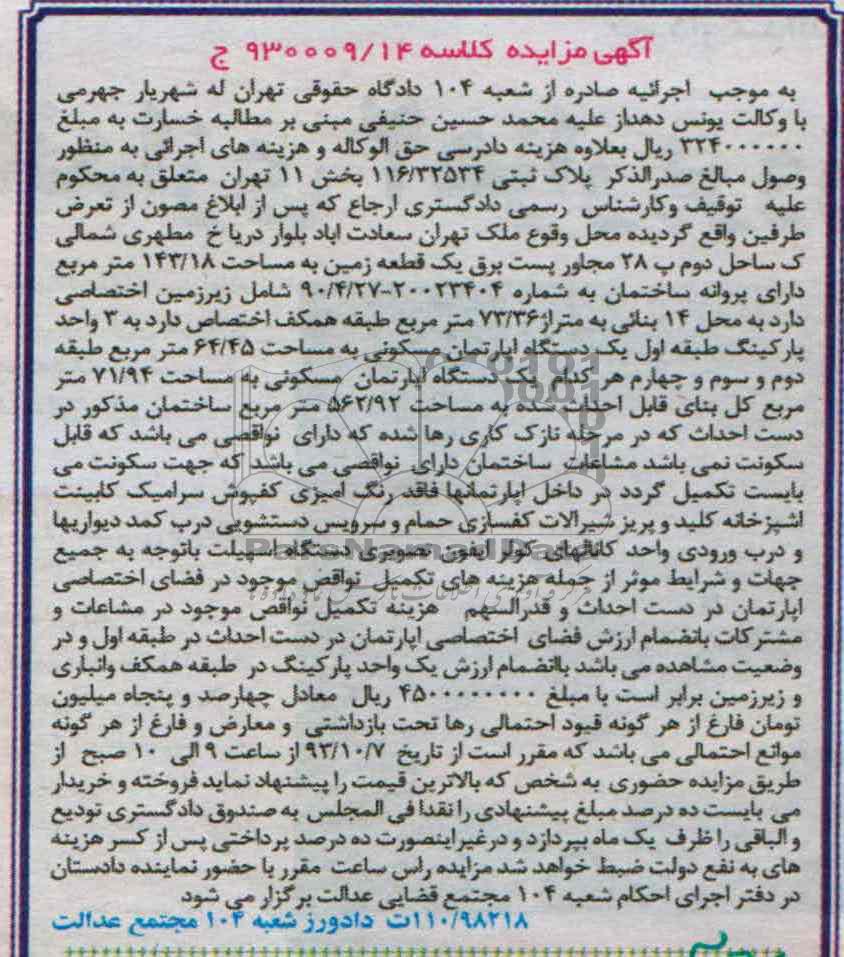 آگهی مزایده کلاسه ۹۳۰۰۰۹/۱۴ ج
به موجب اجرائیه صادره از شعبه ۱۰۴ دادگاه حقوقی تهران له شهریار جهرمی
با وکالت یونس دهداز علیه محمد حسین حنیفی مبنی بر مطالبه خسارت به مبلغ
۳۲۴۰۰۰۰۰۰ ریال بعلاوه هزینه دادرسی حق الوکاله و هزینه های اجرائی به منظور
وصول مبالغ صدرالذکر پلاک ثبتی ۱۱۶/۳۲۵۳۴ بخش ۱۱ تهران متعلق به محکوم
علیه توقیف وکارشناس رسمی دادگستری ارجاع که پس از ابلاغ مصون از تعرض
طرفین واقع گردیده محل وقوع ملک تهران سعادت اباد بلوار دریا خ مطهری شمالی
ک ساحل دوم پ ۲۸ مجاور پست برق یک قطعه زمین به مساحت ۱۴۳/۱۸ متر مربع
دارای پروانه ساختمان به شماره ۲۰۰۲۳۴۰۴-۹۰/۴/۲۷ شامل زیرزمین اختصاصی
دارد به محل ۱۴ بنائی به متراژ۷۳/۳۶ متر مربع طبقه همکف اختصاص دارد به ۳ واحد
پارکینگ طبقه اول یک دستگاه اپارتمان مسکونی به مساحت ۶۴/۴۵ متر مربع طبقه
دوم و سوم و چهارم هر کدام یک دستگاه اپارتمان مسکونی به مساحت ۷۱/۹۴ متر
مربع کل بنای قابل احداث شده به مساحت ۵۶۲/۹۲ متر مربع ساختمان مذکور در
دست احداث که در مرحله نازک کاری رها شده که دارای نواقصی می باشد که قابل
سکونت نمی باشد مشاعات ساختمان دارای نواقصی می باشد که جهت سکونت می
بایست تکمیل گردد در داخل اپارتمانها فاقد رنگ امیزی کفپوش سرامیک کابینت
اشپزخانه کلید و پریز شیرالات کفسازی حمام و سرویس دستشویی درب کمد دیواریها
و درب ورودی واحد کانالهای کولر ایفون تصویری دستگاه اسپیلت باتوجه به جمیع
جهات و شرایط موثر از جمله هزینه های تکمیل نواقص موجود در فضای اختصاصی
اپارتمان در دست احداث و قدرالسهم هزینه تکمیل نواقص موجود در مشاعات و
مشترکات بانضمام ارزش فضای اختصاصی اپارتمان در دست احداث در طبقه اول و در
وضعیت مشاهده می باشد باانضمام ارزش یک واحد پارکینگ در طبقه همکف وانباری
و زیرزمین برابر است با مبلغ ۴۵۰۰۰۰۰۰۰۰ ریال معادل چهارصد و پنجاه میلیون
تومان فارغ از هر گونه قیود احتمالی رها تحت بازداشتی و معارض و فارغ از هر گونه
موانع احتمالی می باشد که مقرر است از تاریخ ۹۳/۱۰/۷ از ساعت ۹ الی ۱۰ صبح از
طریق مزایده حضوری به شخص که بالاترین قیمت را پیشنهاد نماید فروخته و خریدار
می بایست ده درصد مبلغ پیشنهادی را نقدا فی المجلس به صندوق دادگستری تودیع
و الباقی را ظرف یک ماه بپردازد و درغیراینصورت ده درصد پرداختی پس از کسر هزینه
های به نفع دولت ضبط خواهد شد مزایده راس ساعت مقرر با حضور نماینده دادستان
در دفتر اجرای احکام شعبه ۱۰۴ مجتمع قضایی عدالت برگزار می شود
۱۱۰/۹۸۲۱۸ت دادورز شعبه ۱۰۴ مجتمع عدالت